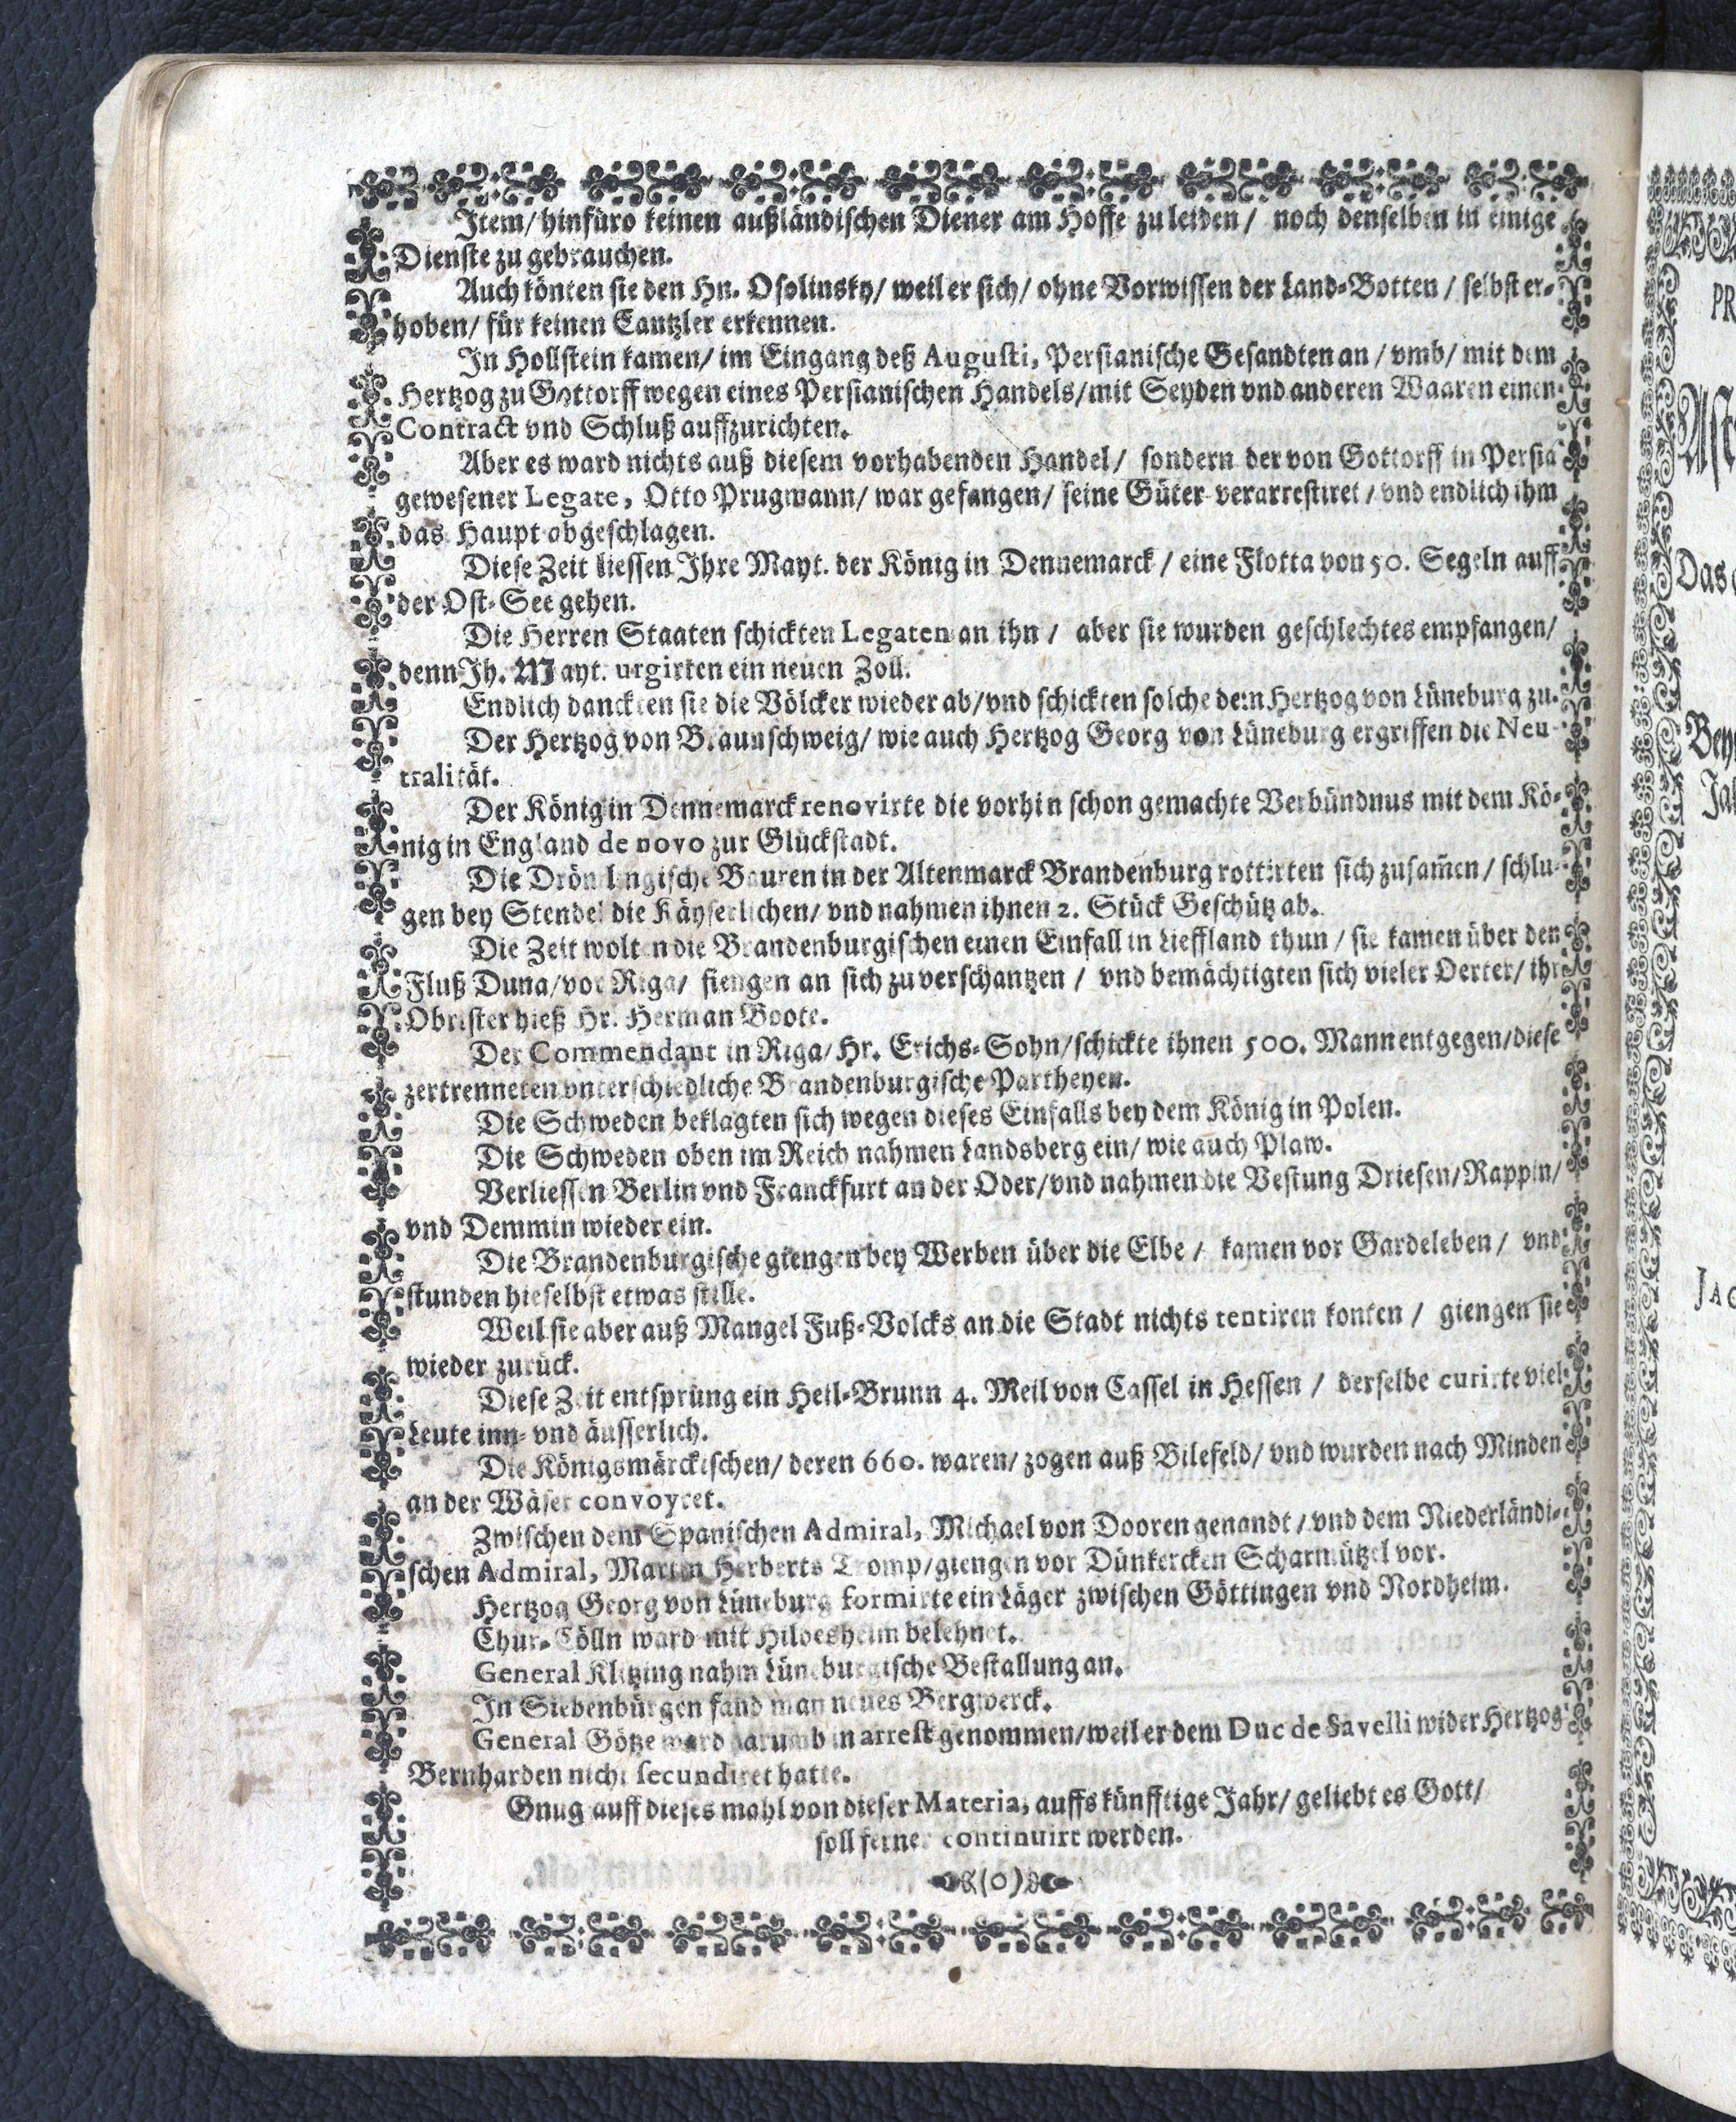 Item/ hinfüro keinen außländischen Diener am Hoffe zu leiden/ noch denselben in einige
Dienste zu gebrauchen.
Auch könten sie den Hn. Osolinsky/ weil er sich/ ohne Vorwissen der Land-Botten/ selbst er-
hoben/ für keinen Cantzler erkennen.
In Hollstein kamen/ im Eingang deß Augusti, Persianische Gesandten an/ vmb/ mit dem
Hertzog zu Gottorff wegen eines Persianischen Handels/ mit Seyden vnd anderen Waaren einen
Contract vnd Schluß auffzurichten.
Aber es ward nichts auß diesem vorhabenden Handel/ sondern der von Gottorff in Persia
gewesener Legate, Otto Prugmann/ war gefangen/ seine Güter verarrestiret/ vnd endlich ihm
das Haupt abgeschlagen.
Diese Zeit liessen Ihre Mayt. der König in Dennemarck/ eine Flotta von 50. Segeln auff
der Ost-See gehen.
Die Herren Staaten schickten Legaten an ihn/ aber sie wurden geschlechtes empfangen/
denn Ih. Mayt. urgirten ein neuen Zoll.
Endlich danckten sie die Völcker wieder ab/ vnd schickten solche dem Hertzog von Lüneburg zu.
Der Hertzog von Braunschweig/ wie auch Hertzog Georg von Lüneburg ergriffen die Neu-
tralität.
Der König in Dennemarck renovirte die vorhin schon gemachte Verbündnus mit dem Kö-
nig in England de novo zur Glückstadt.
Die Drömlingische Bauren in der Altenmarck Brandenburg rottirten sich zusam̃en/ schlu-
gen bey Stendel die Käyserlichen/ vnd nahmen ihnen 2. Stück Geschütz ab.
Die Zeit wolten die Brandenburgischen einen Einfall in Lieffland thun/ sie kamen über den
Fluß Duna/ vor Riga/ fiengen an sich zu verschantzen/ vnd bemächtigten sich vieler Oerter/ ihr
Obrister hieß Hr. Herman Boote.
Der Commendant in Riga/ Hr. Erichs-Sohn/ schickte ihnen 500. Mann entgegen/ diese
zertrenneten vnterschiedliche Brandenburgische Partheyen.
Die Schweden beklagten sich wegen dieses Einfalls bey dem König in Polen.
Die Schweden oben im Reich nahmen Landsberg ein/ wie auch Plaw.
Verliessen Berlin vnd Franckfurt an der Oder/ vnd nahmen die Vestung Driesen/ Rappin/
vnd Demmin wieder ein.
Die Brandenburgische giengen bey Werben über die Elbe/ kamen vor Gardeleben/ vnd
stunden hieselbst etwas stille.
Weil sie aber auß Mangel Fuß-Volcks an die Stadt nichts tentiren konten/ giengen sie
wieder zurück.
Diese Zeit entsprung ein Heil-Brunn 4. Meil von Cassel in Hessen/ derselbe curirte viel
Leute inn- vnd äusserlich.
Die Königsmärckischen/ deren 660. waren/ zogen auß Bilefeld/ vnd wurden nach Minden
an der Wäser convoyret.
Zwischen dem Spanischen Admiral, Michael von Dooren genandt/ vnd dem Niederländi-
schen Admiral, Marten Herberts Tromp/ giengen vor Dünkercken Scharmützel vor.
Hertzog Georg von Lüneburg formirte ein Läger zwischen Göttingen vnd Nordheim.
Chur-Cölln ward mit Hildesheim belehnet.
General Klitzing nahm Lüneburgische Bestallung an.
In Siebenbürgen fand man neues Bergwerck.
General Götze ward darumb in arrest genommen/ weil er dem Duc de Savelli wider Hertzog
Bernharden nicht secundiret hatte.
Gnug auff dieses mahl von dieser Materia, auffs künfftige Jahr/ geliebt es Gott/
soll ferner continuirt werden.
(0)
PR
Das
Bey
Jah
JAC